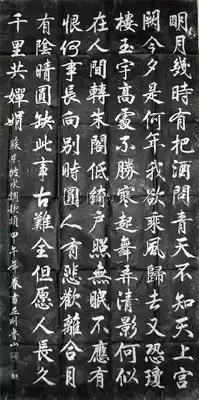 明月幾時有把酒問青天不知天上宮
闕今夕是何年我欲乘風歸去又恐瓊
樓玉宇高處不勝寒起舞弄清影何似
在人間轉朱閣低綺戶照無眠不應有
恨何事長向別時圓人有悲歡離合月
有陰晴圓缺此事古難全但愿人長久
千里共嬋娟 蘇東坡水調歌頭